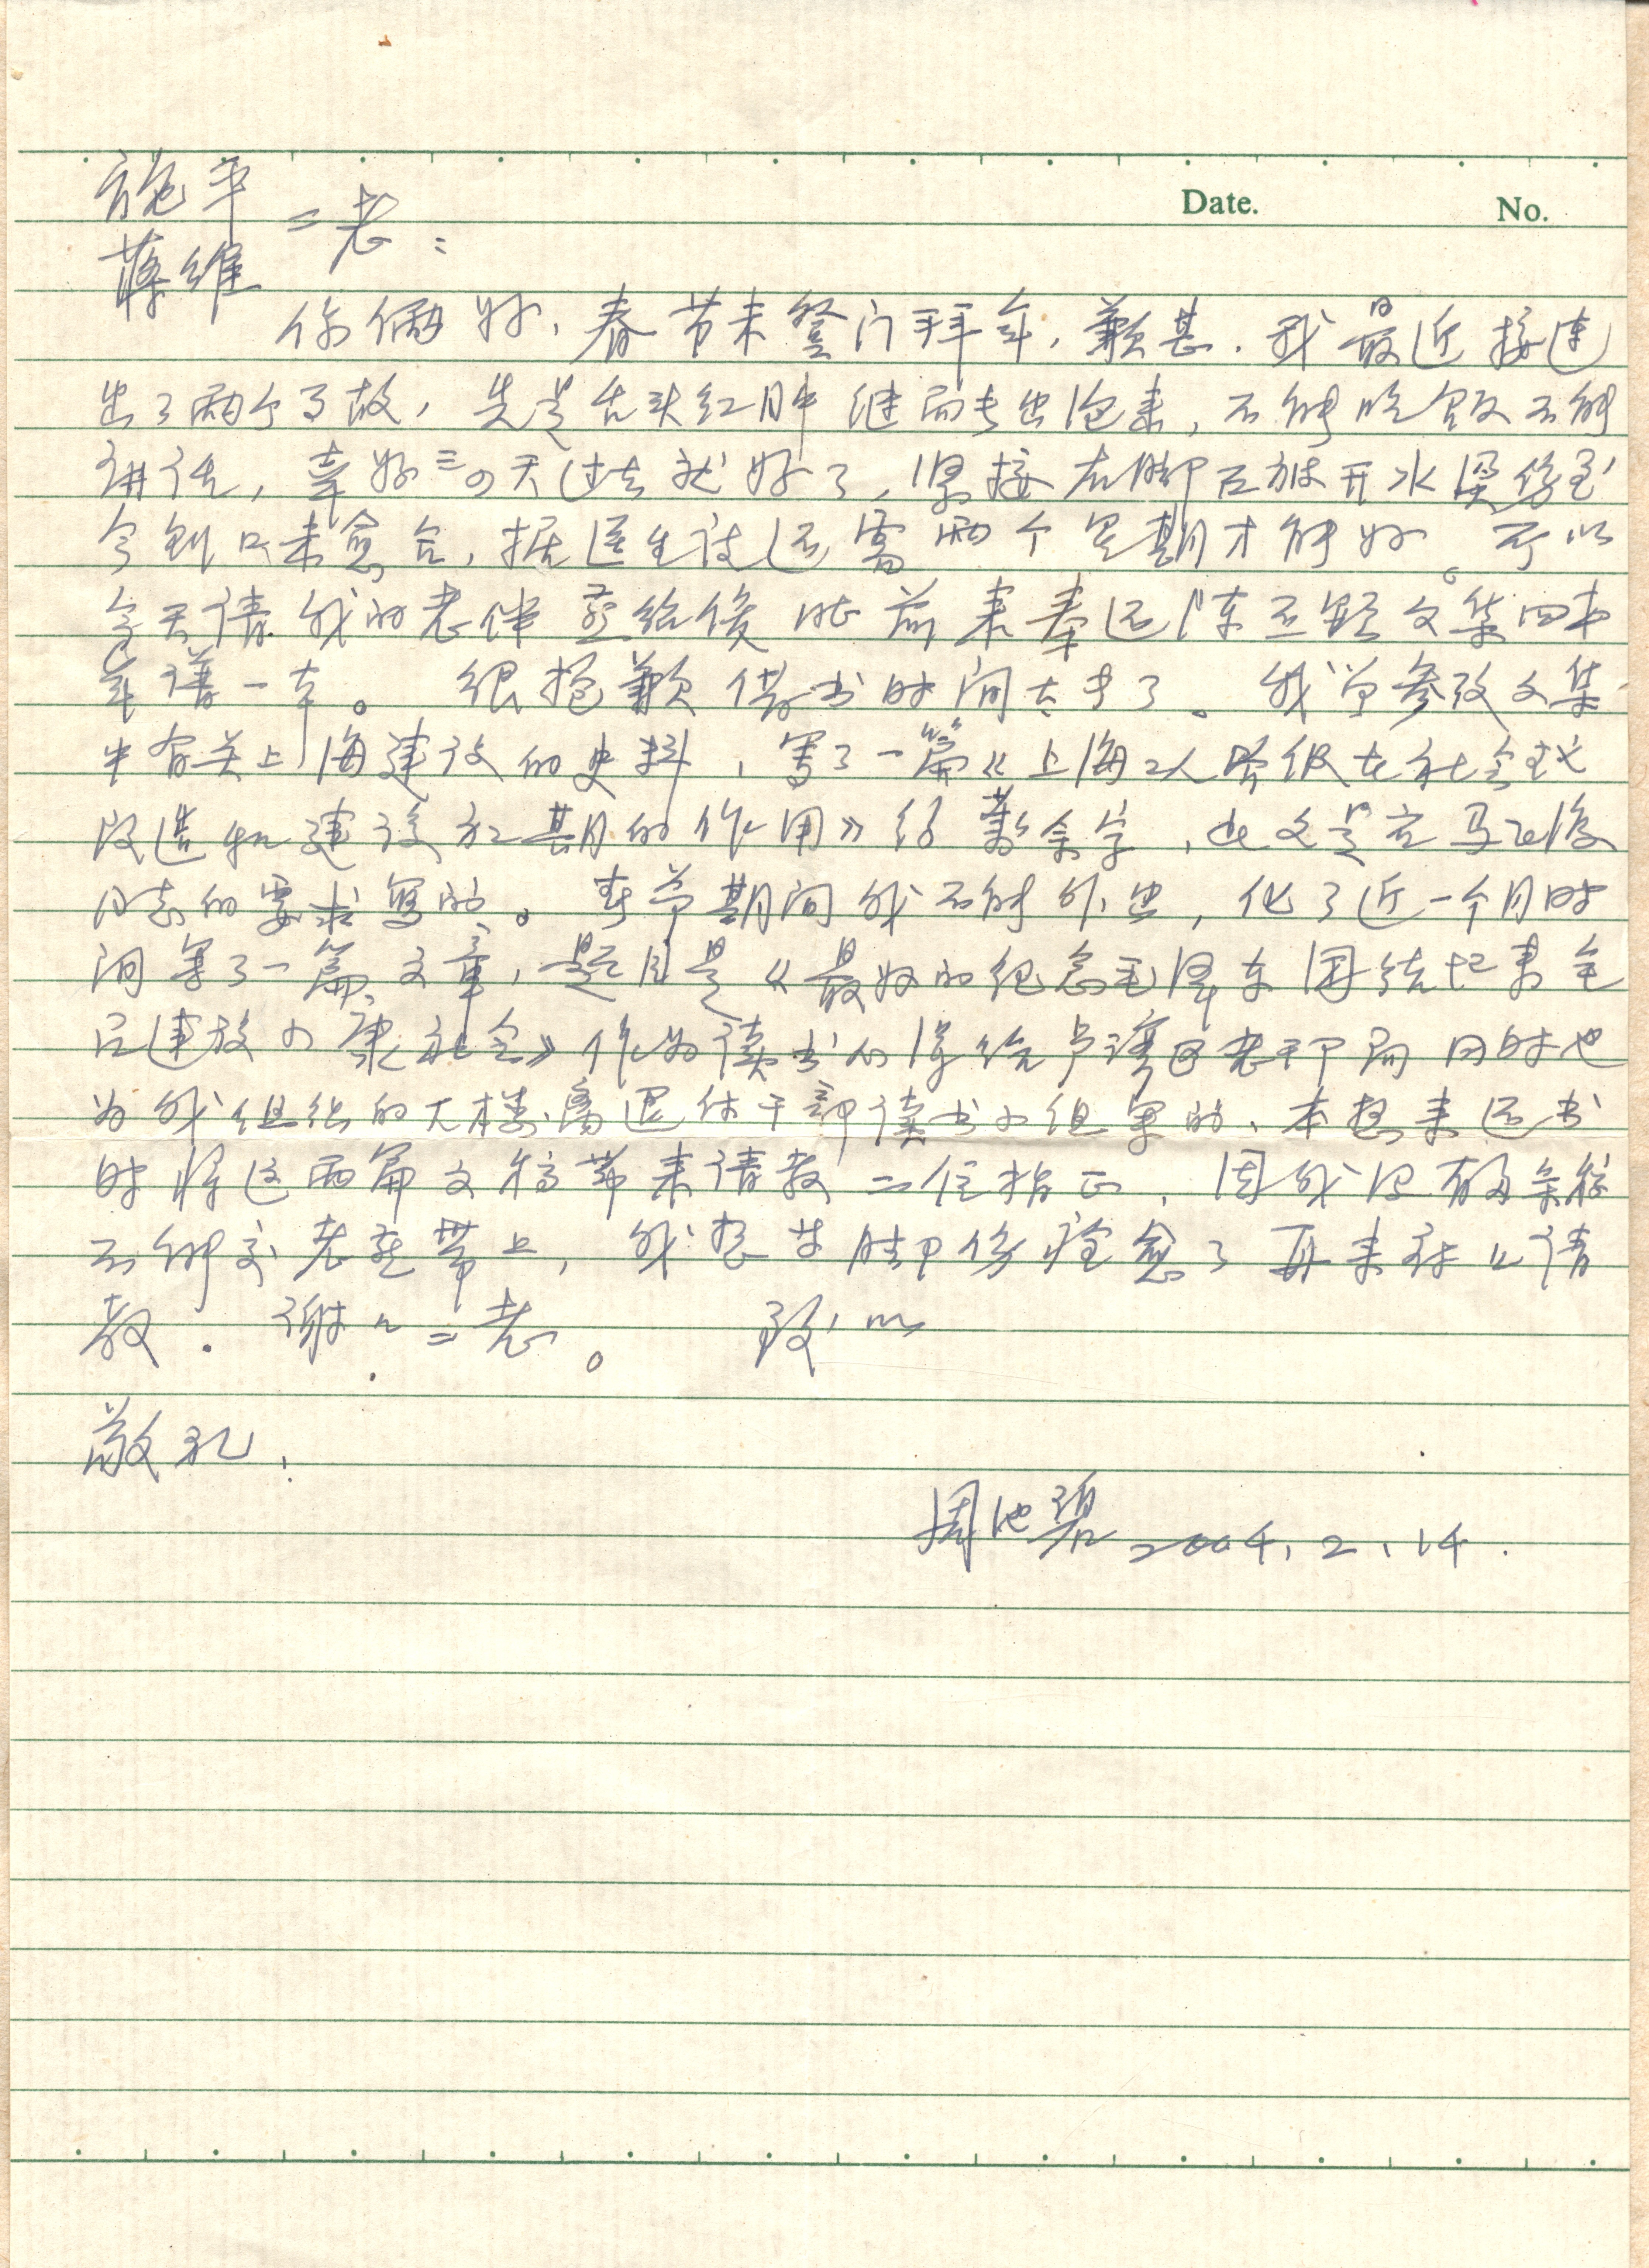 Date. No.
施平
蒋维 二老：
你俩好，春节未登门拜年，歉甚．我最近接连
出了两个事故，先是舌头红肿继而长出泡来，不能吃饭不能
讲话，幸好三四天过去就好了，紧接右脚又被开水烫伤至
今创口未愈合，据医生说还需两个星期才能好。所以
今天请我的老伴 前来奉还《陈丕显文集四本
年谱一本。 很抱歉借书时间太长了。我曾参改文集
中有关上海建设的史料，写了一篇《上海工人阶级在社会主义
改造和建设初期的作用》约 万余字，此文是应马飞海
同志的要求写的。春节期间我不能外出，化了近一个月时
间写了一篇文章，题目是《最好的纪念毛泽东 团结起来全
民建设小康社会》作为读书心得给卢湾区老干部局同时也
为我组织的大楼离退休干部读书小组写的、本想来还书
时将这两篇文稿带来请教二位指正，因我没有
不能交老 带上，我想等脚伤痊愈了再来登门请
教．谢〃二老。 致以
敬礼，
周池碧 2004.2.14.